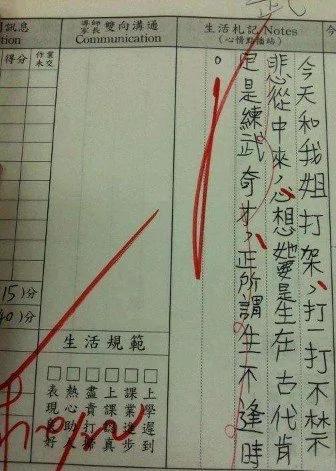 今
生活札記 Notes
(心情點播站)
今天和我姐打架，打一打不禁
悲從中來，心想她要是生在古代肯
定是練武奇才，正所謂生不逢時
。
導師家長 雙向溝通
Communication
訊息
tion
得分
作業未交
15)分
40)分
生活規範
□上學遲到
□課業進步
□上課認真
□盡責打掃
□熱心助人
□表現良好